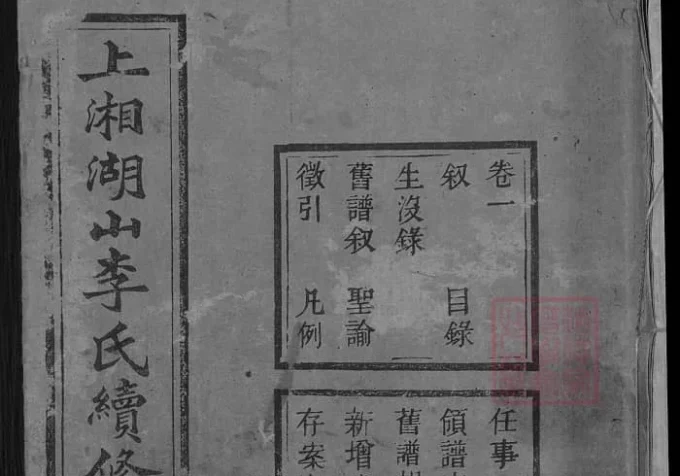 上湘湖山李氏續修
卷一
叙 目錄
生沒錄
舊譜叙 聖諭
徵引 凡例
任事
領譜
舊譜
新增
存案